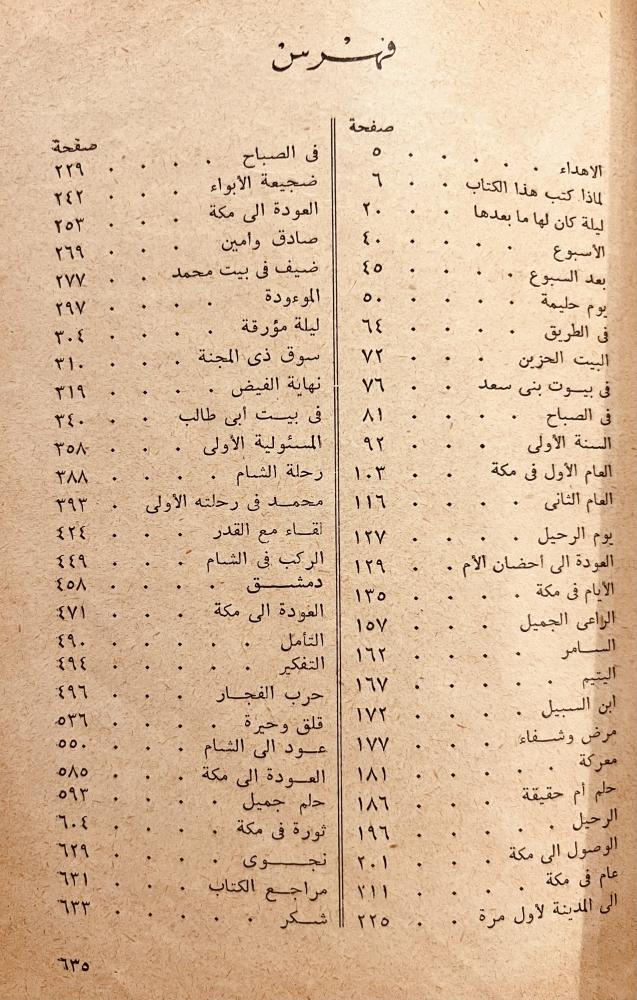 فهرس
صفحة
الاهداء . . . . . ٥
لماذا كتب هذا الكتاب . . ٦
ليلة كان لها ما بعدها . . ٢٠
الأسبوع . . . . ٤٠
بعد السبوع . . . . ٤٥
يوم حليمة . . . . ٥٠
فى الطريق . . . . ٦٤
البيت الحزين . . . ٧٢
فى بيوت بنى سعد . . ٧٦
فى الصباح . . . . ٨١
السنة الأولى . . . ٩٢
العام الأول فى مكة . . ١٠٣
العام الثانى . . . . ١١٦
يوم الرحيل . . . . ١٢٧
العودة الى أحضان الأم . . ١٢٩
الأيام فى مكة . . . . ١٣٥
الراعى الجميل . . . ١٥٧
السامر . . . . ١٦٢
اليتيم . . . . . ١٦٧
ابن السبيل . . . . ١٧٢
مرض وشفاء . . . . ١٧٧
معركة . . . . . ١٨١
حلم أم حقيقة . . . ١٨٦
الرحيل . . . . . ١٩٦
الوصول الى مكة . . . ٢٠١
عام فى مكة . . . . ٢١١
الى المدينة لأول مرة . . ٢٢٥
صفحة
فى الصباح . . . . ٢٢٩
ضجيعة الأبواء . . . ٢٤٢
العودة الى مكة . . . ٢٥٣
صادق وامين . . . ٢٦٩
ضيف فى بيت محمد . . ٢٧٧
الموءودة . . . . ٢٩٧
ليلة مؤرقة . . . . ٣٠٤
سوق ذى المجنة . . . ٣١٠
نهاية الفيض . . . ٣١٩
فى بيت أبى طالب . . ٣٤٠
المسئولية الأولى . . . ٣٥٨
رحلة الشام . . . . ٣٨٨
محمد فى رحلته الأولى . ٣٩٣
لقاء مع القدر . . . ٤٢٤
الركب فى الشام . . . ٤٤٩
دمشق . . . . ٤٥٨
العودة الى مكة . . . ٤٧١
التأمل . . . . . ٤٩٠
التفكير . . . . . ٤٩٤
حرب الفجار . . . ٤٩٦
قلق وحيرة . . . . ٥٣٦
عود الى الشام . . . ٥٥٠
العودة الى مكة . . . ٥٨٥
حلم جميل . . . . ٥٩٣
ثورة فى مكة . . . ٦٠٤
نجوى . . . . ٦٢٩
مراجع الكتاب . . . ٦٣١
شكر . . . . . ٦٣٣
٦٣٥